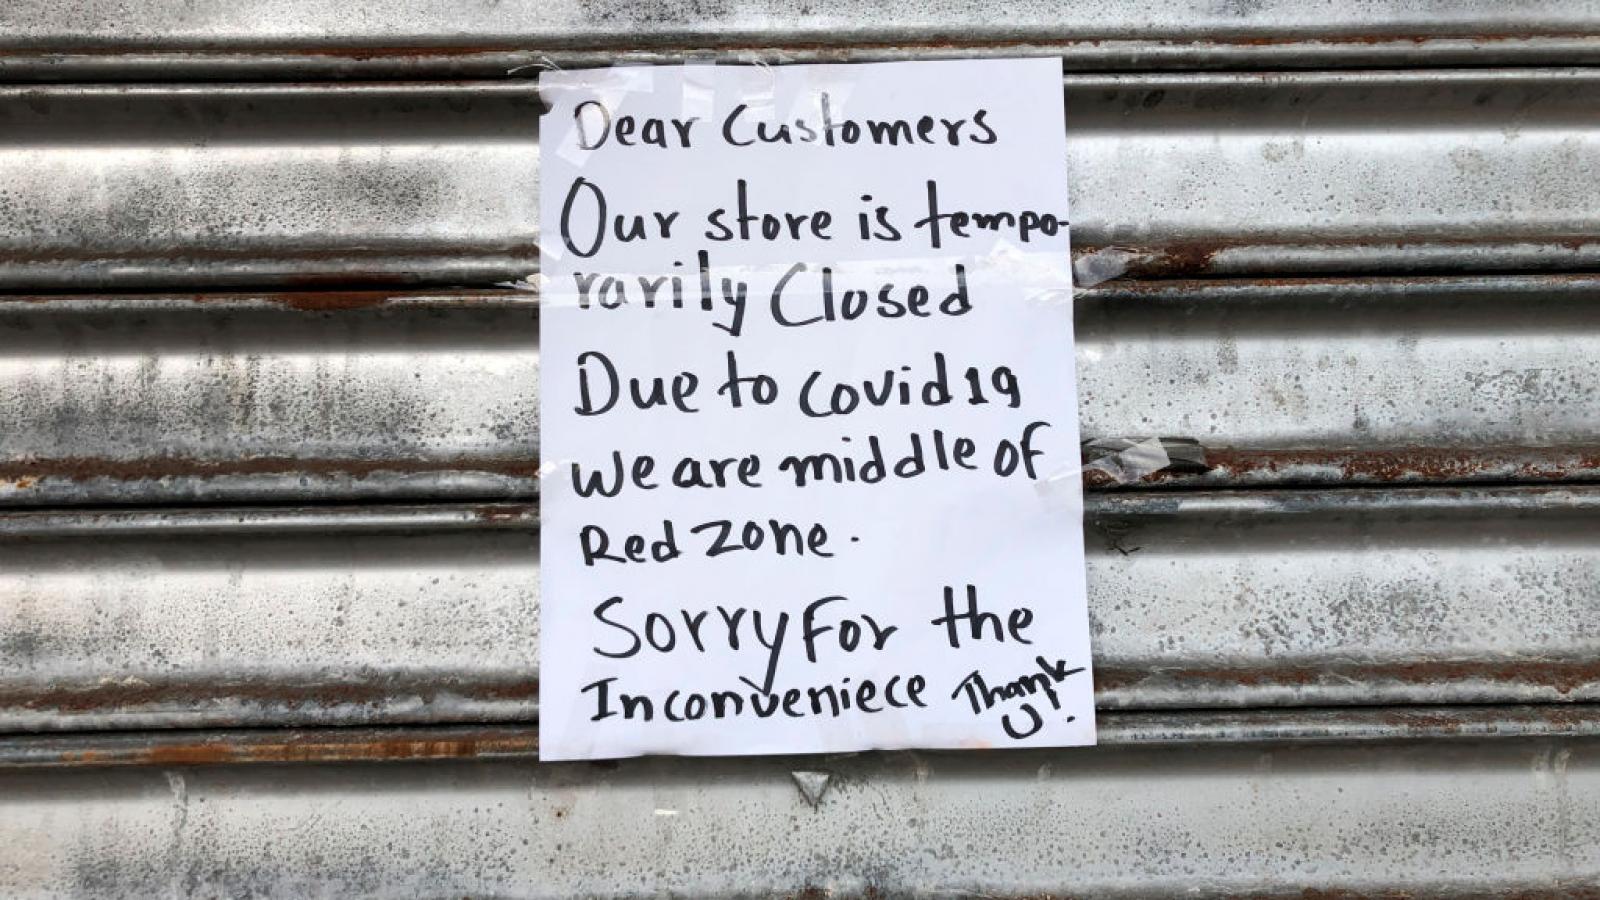 Dear Customers
Our store is tempo-
rarily Closed
Due to covid 19
We are middle of
Red zone.
Sorry For the
Inconveniece Thank
U!